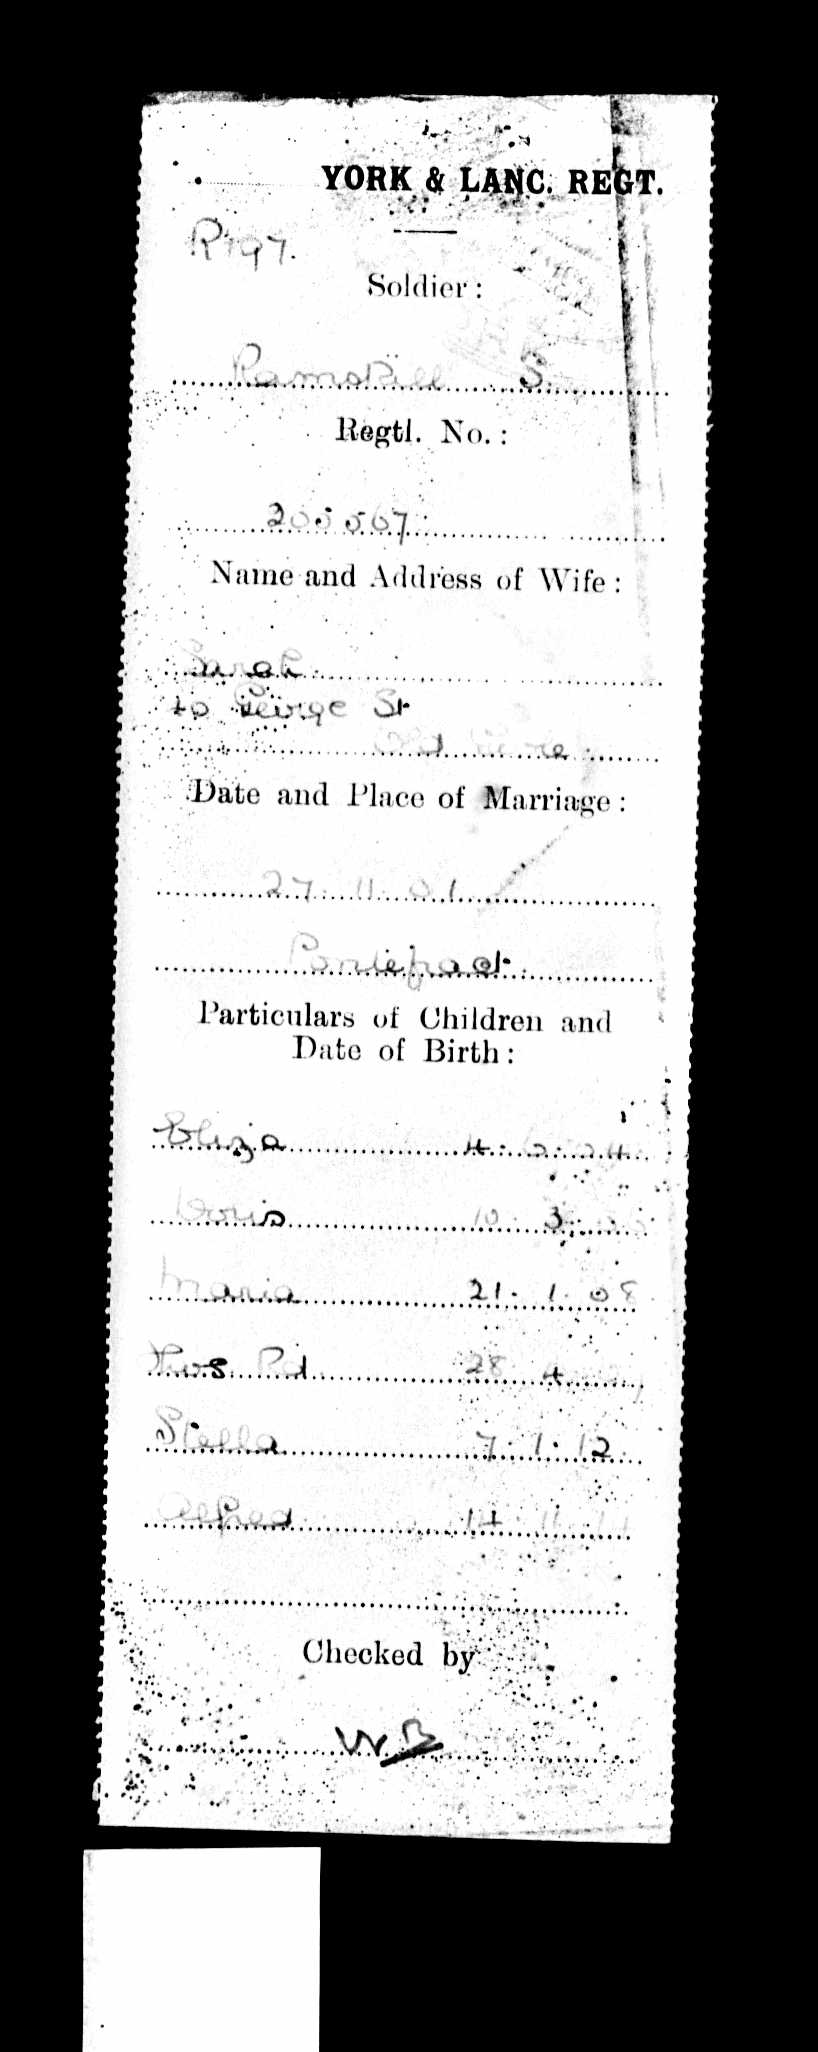 YORK & LANC. REGT.
R797.
Soldier:
Ramskill S.
Regtl. No.:
200507
Name and Address of Wife:
Sarah
10 George St
Date and Place of Marriage:
27. 11. 01
Pontefract
Particulars of Children and
Date of Birth:
Eliza 4.
Doris 10. 3.
Maria 21. 1. 08
Thos Rd 28 4
Stella 7. 1. 12
Alfred 14 11 14
Checked by
WB